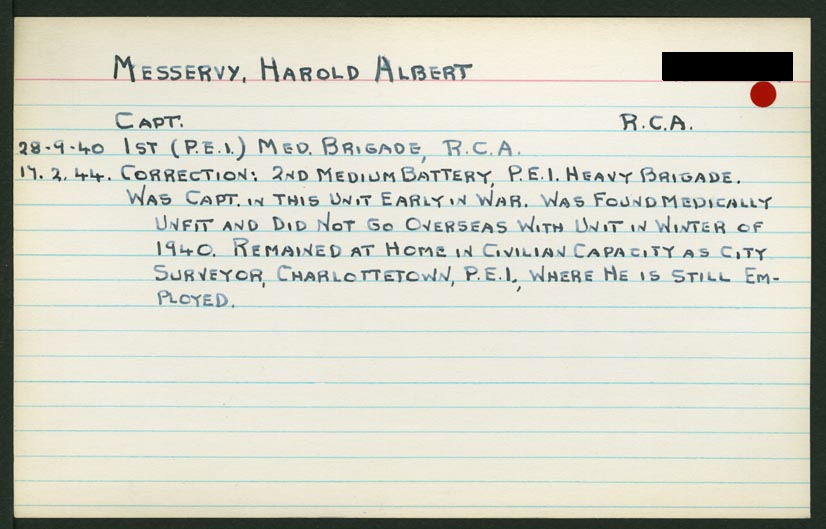 MESSERVY, HAROLD ALBERT
CAPT. R.C.A.
28-9-40 1ST (P.E.I.) MED. BRIGADE, R.C.A.
17.2.44. CORRECTION: 2ND MEDIUM BATTERY, P.E.I. HEAVY BRIGADE.
WAS CAPT. IN THIS UNIT EARLY IN WAR. WAS FOUND MEDICALLY
UNFIT AND DID NOT GO OVERSEAS WITH UNIT IN WINTER OF
1940. REMAINED AT HOME IN CIVILIAN CAPACITY AS CITY
SURVEYOR, CHARLOTTETOWN, P.E.I., WHERE HE IS STILL EM-
PLOYED.